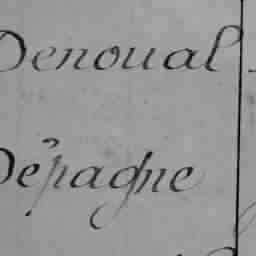 Denoual
Dépagne